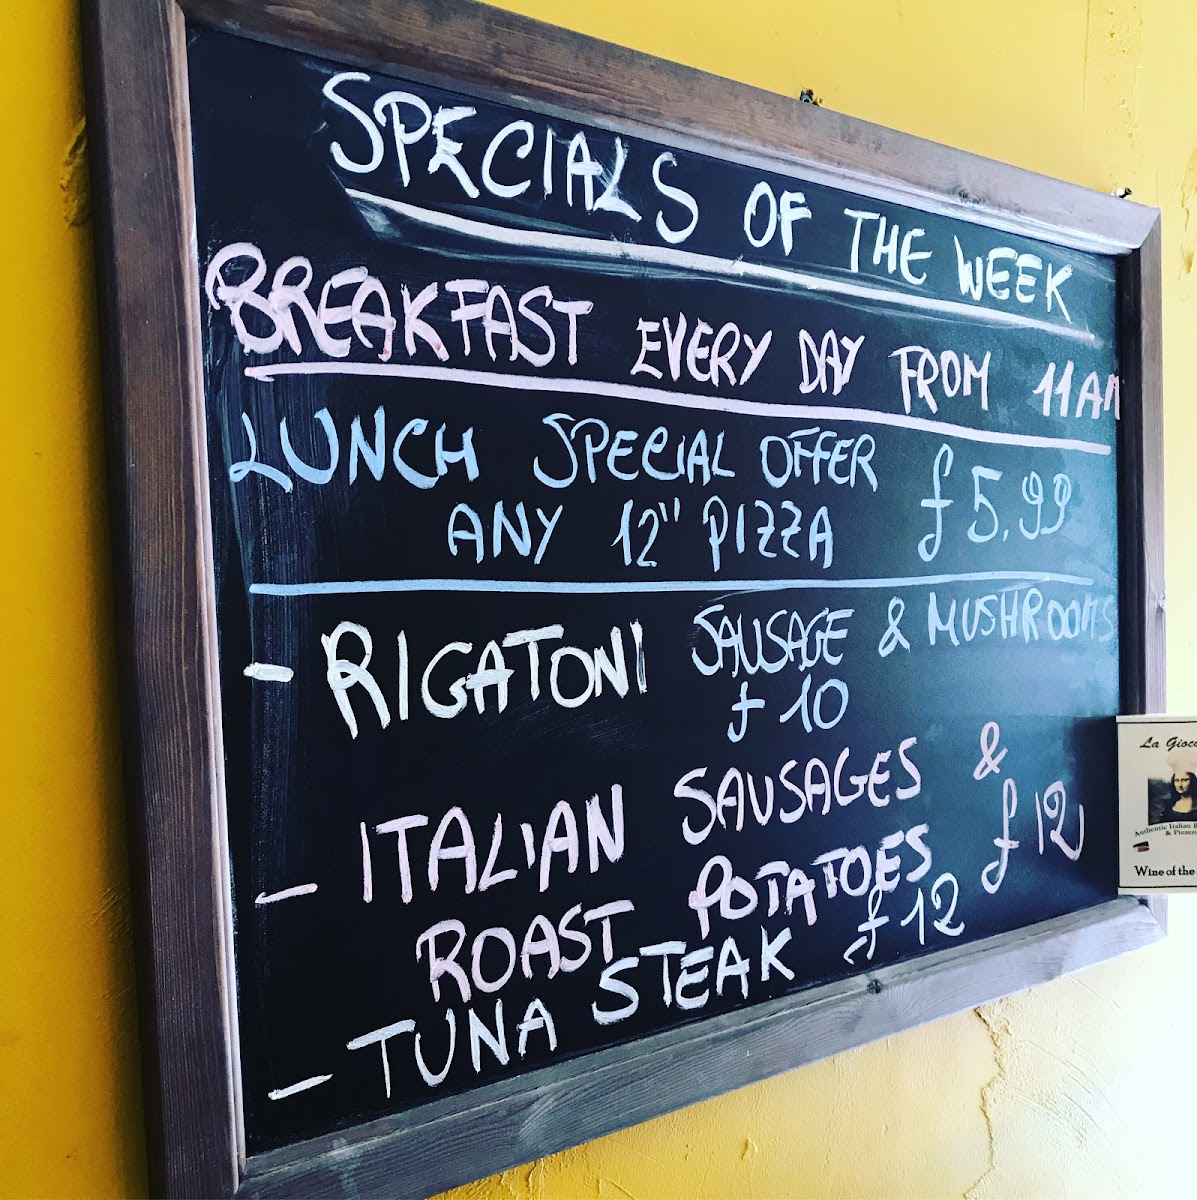 SPECIALS OF THE WEEK
BREAKFAST EVERY DAY FROM 11AM
LUNCH SPECIAL OFFER
ANY 12" PIZZA £5.99
- RIGATONI SAUSAGE & MUSHROOMS
£10
- ITALIAN SAUSAGES &
ROAST POTATOES £12
- TUNA STEAK £12
La Gioco
Authentic Italian
& Pizzeri
Wine of the